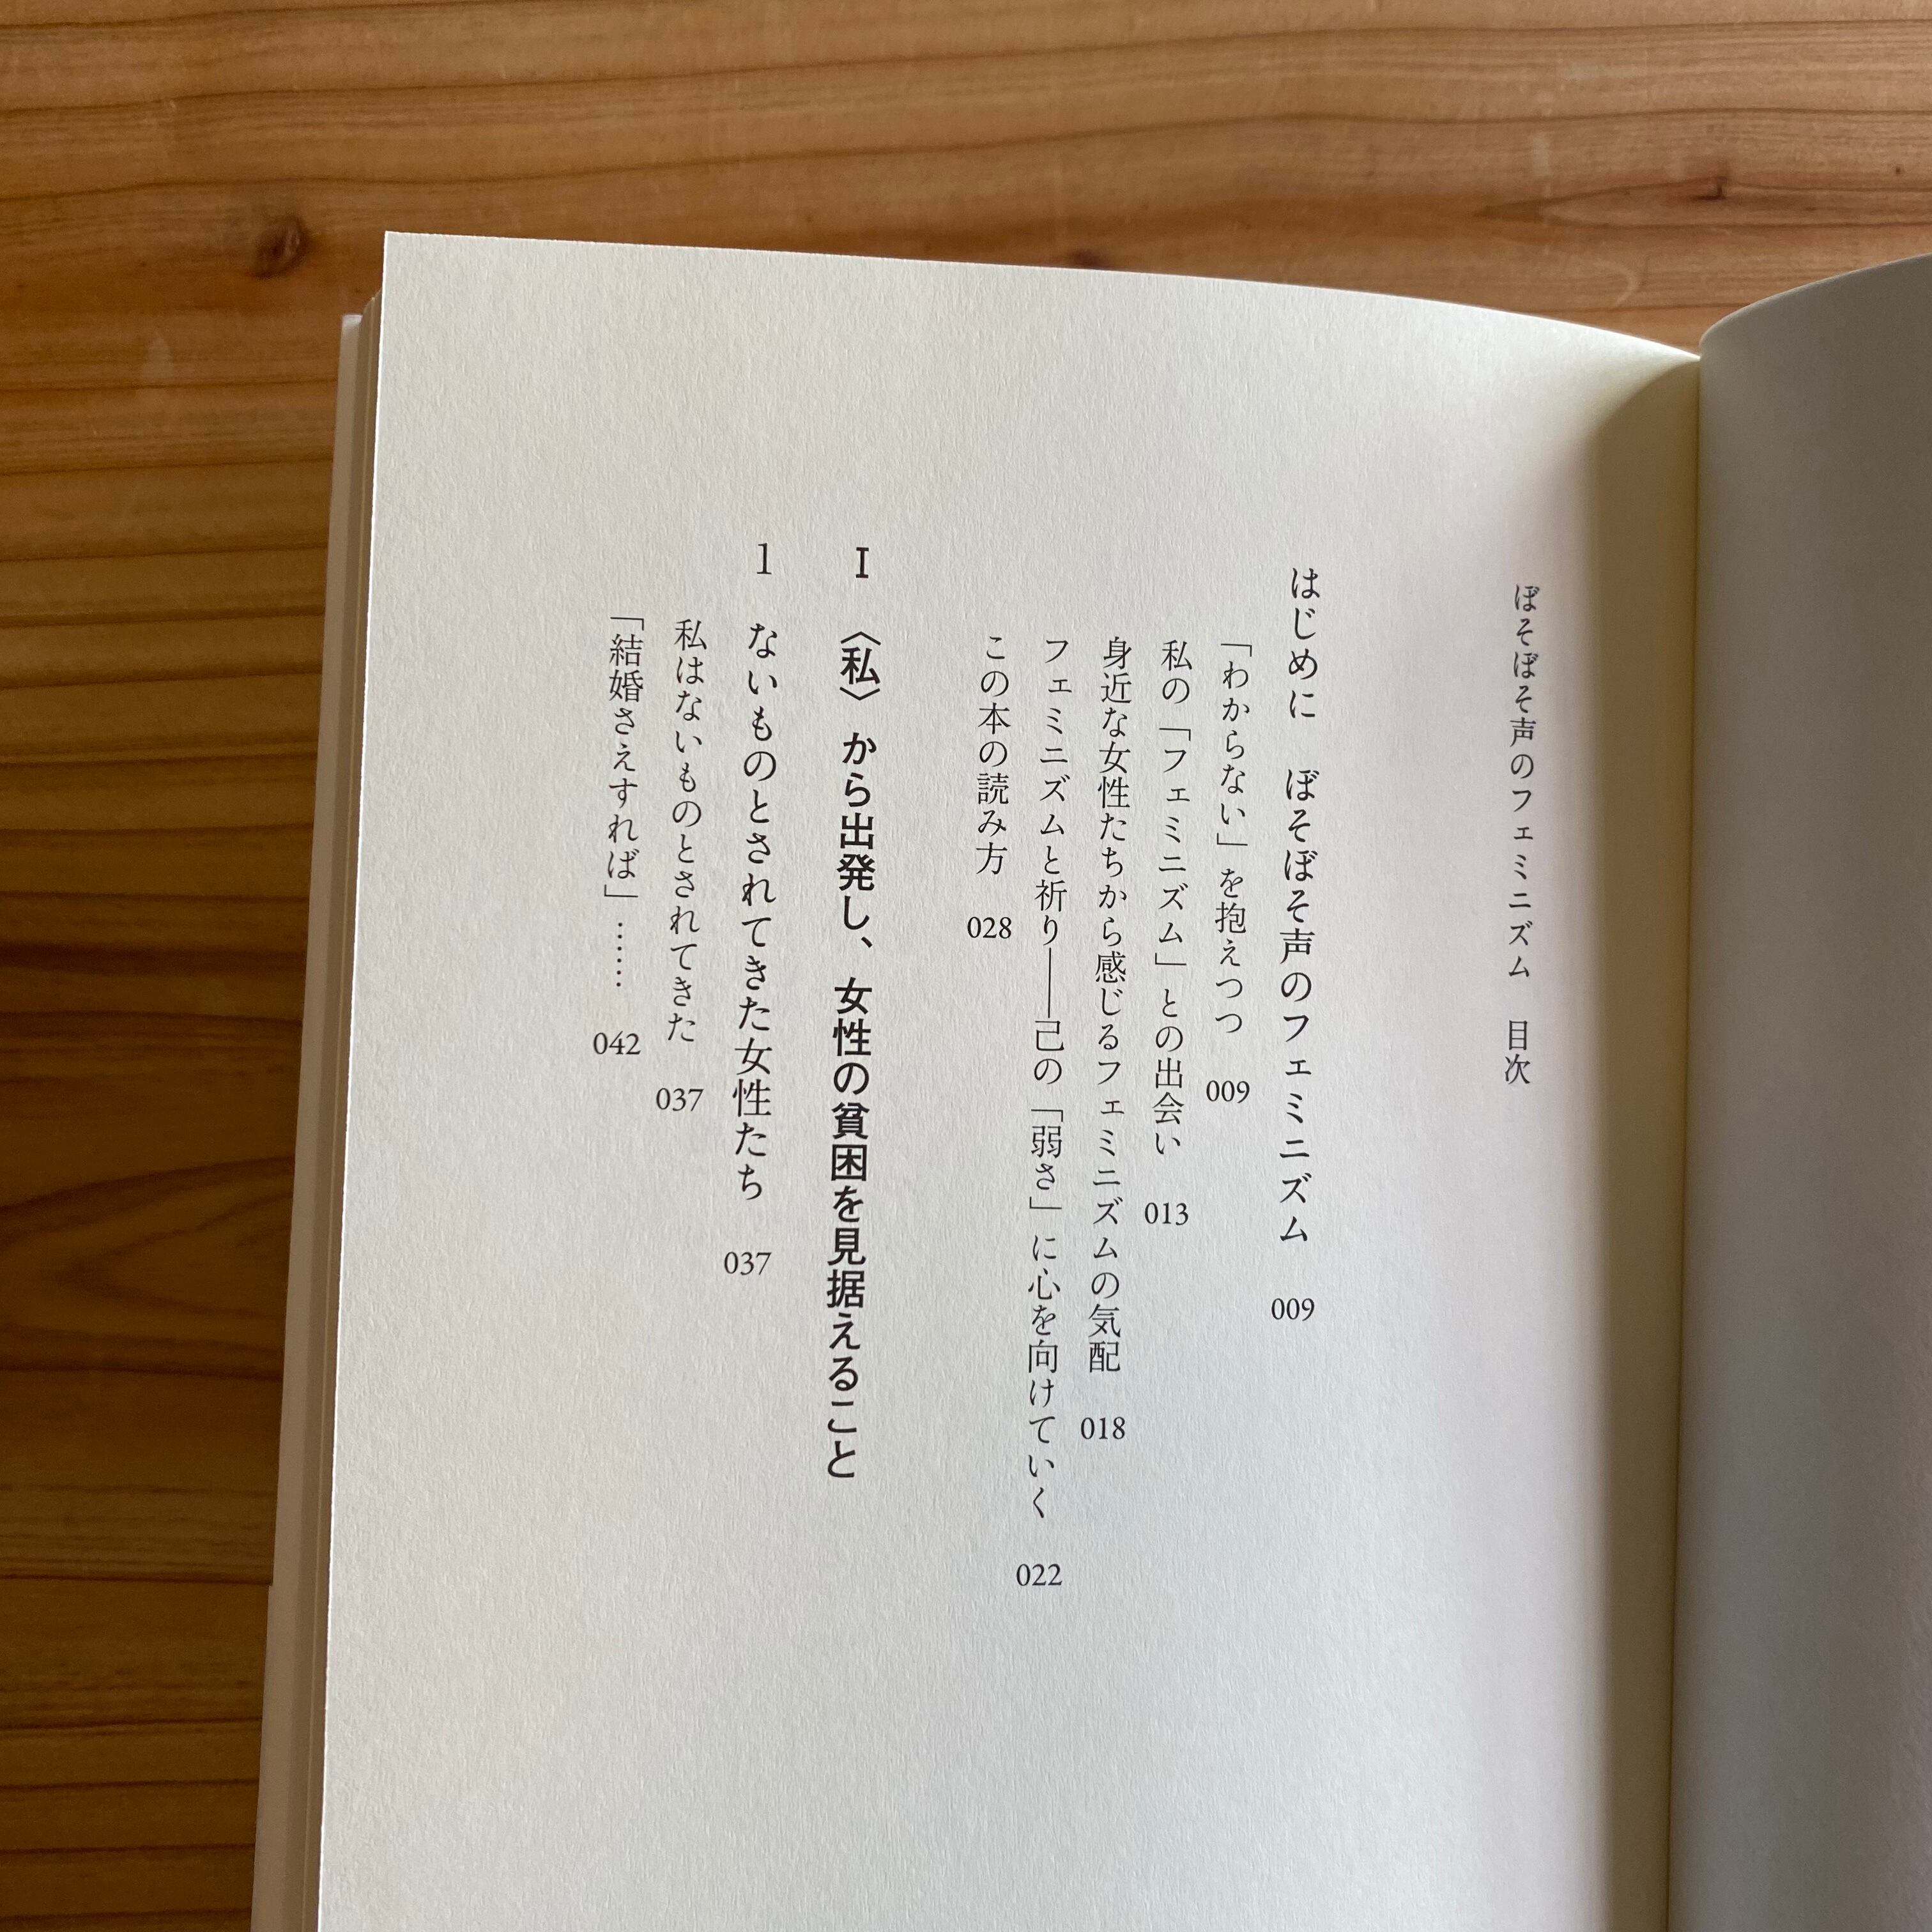 ぼそぼそ声のフェミニズム　目次
はじめに　ぼそぼそ声のフェミニズム　009
「わからない」を抱えつつ　009
私の「フェミニズム」との出会い　013
身近な女性たちから感じるフェミニズムの気配　018
フェミニズムと祈り——己の「弱さ」に心を向けていく　022
この本の読み方　028
I　〈私〉から出発し、女性の貧困を見据えること
1　ないものとされてきた女性たち　037
私はないものとされてきた　037
「結婚さえすれば」……　042